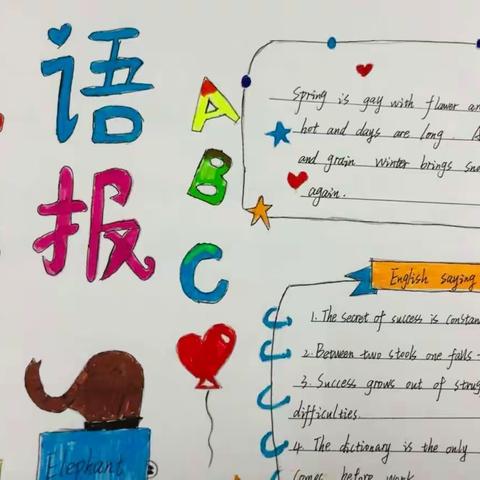 语
报
A
B
C
Spring is gay with flower
hot and days are long.
and grain winter brings
again.
English saying
1. The secret of success is
2. Between two stools one falls
3. Success grows out of
difficulties.
4. The dictionary is the only
comes before work
Elephant